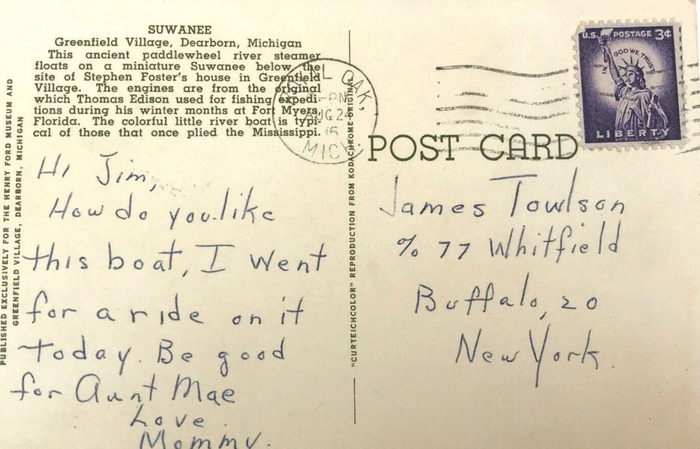 SUWANEE
Greenfield Village, Dearborn, Michigan
This ancient paddlewheel river steamer
floats on a miniature Suwanee below the
site of Stephen Foster's house in Greenfield
Village. The engines are from the original
which Thomas Edison used for fishing expedi-
tions during his winter months at Fort Myers,
Florida. The colorful little river boat is typi-
cal of those that once plied the Mississippi.
PUBLISHED EXCLUSIVELY FOR THE HENRY FORD MUSEUM AND
GREENFIELD VILLAGE, DEARBORN, MICHIGAN
Hi Jim,
How do you like
this boat, I went
for a ride on it
today. Be good
for Aunt Mae
Love.
Mommy.
"CURTEICHCOLOR" REPRODUCTION FROM KODACHROME ORIGINAL
OAK
PM
24
MICH
U.S. POSTAGE 3¢
IN GOD WE TRUST
LIBERTY
POST CARD
James Towlson
% 77 Whitfield
Buffalo, 20
New York.